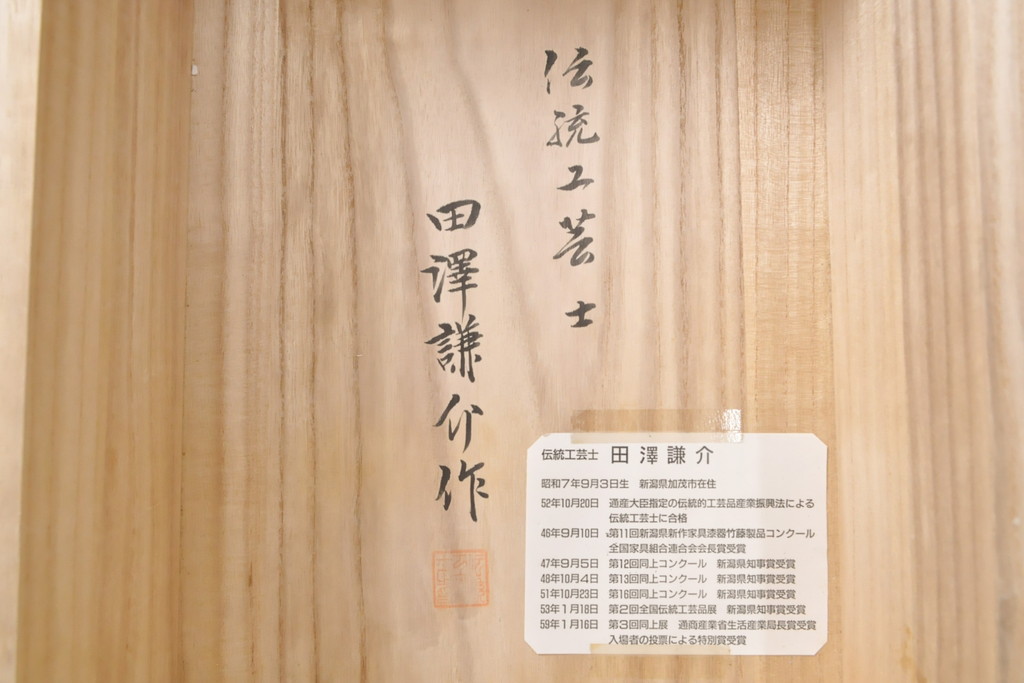 伝統工芸士
田澤謙介作
伝統工芸士 田澤謙介
昭和7年9月3日生 新潟県加茂市在住
52年10月20日 通産大臣指定の伝統的工芸品産業振興法による
伝統工芸士に合格
46年9月10日 第11回新潟県新作家具漆器竹藤製品コンクール
全国家具組合連合会会長賞受賞
47年9月5日 第12回同上コンクール 新潟県知事賞受賞
48年10月4日 第13回同上コンクール 新潟県知事賞受賞
51年10月23日 第16回同上コンクール 新潟県知事賞受賞
53年1月18日 第2回全国伝統工芸品展 新潟県知事賞受賞
59年1月16日 第3回同上展 通商産業省生活産業局長賞受賞
入場者の投票による特別賞受賞